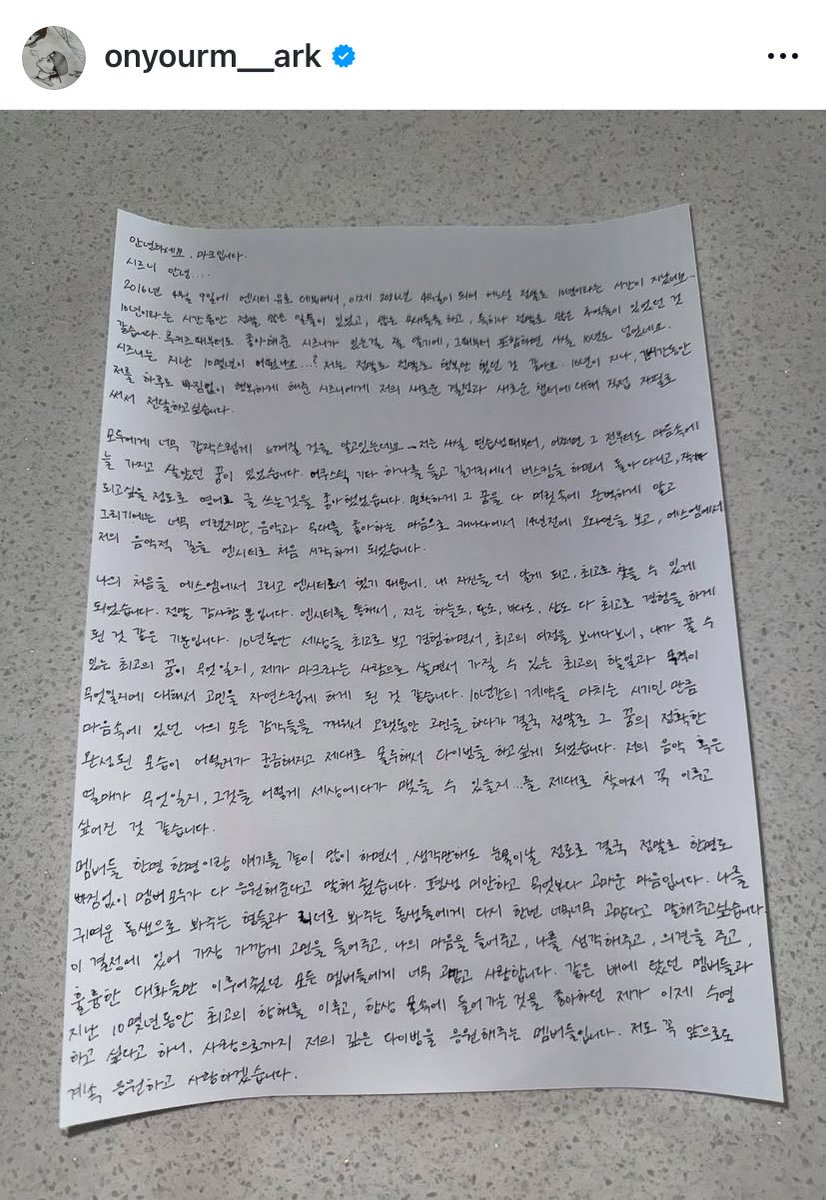 onyourm__ark
안녕하세요. 마크입니다.
시즈니 안녕....
2016년 4월 9일에 엔시티 유로 데뷔해서, 이제 2026년 4월이 되어 어느덧 정말로 10년이라는 시간이 지났네요..
10년이라는 시간동안 정말 많은 일들이 있었고, 많은 무대들을 하고, 특히나 정말로 많은 추억들이 있었던 것
같습니다. 루키즈때부터도 좋아해준 시즈니가 있는걸 잘 알기에, 그때부터 포함하면 사실 10년도 넘었네요.
시즈니는 지난 10몇년이 어땠나요...? 저는 정말로 정말로 행복만 했던 것 같아요. 10년이 지나, 그 시간동안
저를 하루도 빠짐없이 행복하게 해준 시즈니에게 저의 새로운 결정과 새로운 챕터에 대해 직접 자필로
써서 전달하고싶습니다.
모두에게 너무 갑작스럽게 느껴질 것을 알고있는데요... 저는 사실 연습생때부터, 어쩌면 그 전부터도 마음속에
늘 가지고 살았던 꿈이 있었습니다. 어쿠스틱 기타 하나를 들고 길거리에서 버스킹을 하면서 돌아다니고, 작가
되고싶을 정도로 영어로 글 쓰는것을 좋아했었습니다. 명확하게 그 꿈을 다 머릿속에 완벽하게 알고
그리기에는 너무 어렸지만, 음악과 무대를 좋아하는 마음으로 캐나다에서 14년전에 오디션을 보고, 에스엠에서
저의 음악적 길을 엔시티로 처음 시작하게 되었습니다.
나의 처음을 에스엠에서 그리고 엔시티로서 했기 때문에, 내 자신을 더 알게 되고, 최고로 찾을 수 있게
되었습니다. 정말 감사할 뿐입니다. 엔시티를 통해서, 저는 하늘도, 땅도, 바다도, 산도 다 최고로 경험을 하게
된 것 같은 기분입니다. 10년동안 세상을 최고로 보고 경험하면서, 최고의 여정을 보내다보니, 내가 꿀 수
있는 최고의 꿈이 무엇일지, 제가 마크라는 사람으로 살면서 가질 수 있는 최고의 할일과 목적이
무엇일지에 대해서 고민을 자연스럽게 하게 된 것 같습니다. 10년간의 계약을 마치는 시기인 만큼
마음속에 있던 나의 모든 감각들을 깨워서 오랫동안 고민을 하다가 결국 정말로 그 꿈의 정확한
완성된 모습이 어떨지가 궁금해지고 제대로 몰두해서 다이빙을 하고싶게 되었습니다. 저의 음악 혹은
열매가 무엇일지, 그것을 어떻게 세상에다가 맺을 수 있을지..를 제대로 찾아서 꼭 이루고
싶어진 것 같습니다.
멤버들 한명 한명이랑 얘기를 같이 많이 하면서, 생각만해도 눈물이날 정도로 결국 정말로 한명도
빠짐없이 멤버 모두가 다 응원해준다고 말해줬습니다. 평생 미안하고 무엇보다 고마운 마음입니다. 나를
귀여운 동생으로 봐주는 형들과 리더로 봐주는 동생들에게 다시 한번 너무너무 고맙다고 말해주고싶습니다.
이 결정에 있어 가장 가깝게 고민을 들어주고, 나의 마음을 들어주고, 나를 생각해주고, 의견을 주고,
훌륭한 대화들만 이루어줬던 모든 멤버들에게 너무 고맙고 사랑합니다. 같은 배에 탔던 멤버들과
지난 10몇년동안 최고의 항해를 이루고, 항상 물속에 들어가는 것을 좋아하던 제가 이제 수영
하고 싶다고 하니, 사랑으로까지 저의 깊은 다이빙을 응원해주는 멤버들입니다. 저도 꼭 앞으로도
계속 응원하고 사랑하겠습니다.